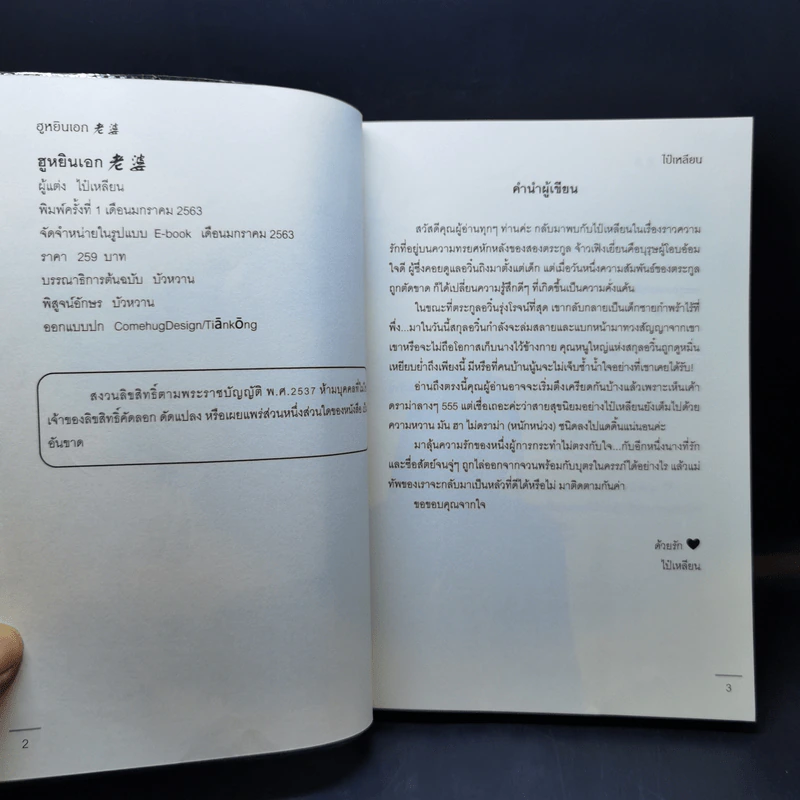 ฮูหยินเอก 老婆
ฮูหยินเอก 老婆
ผู้แต่ง ไป๋เหลียน
พิมพ์ครั้งที่ 1 เดือนมกราคม 2563
จัดจำหน่ายในรูปแบบ E-book เดือนมกราคม 2563
ราคา 259 บาท
บรรณาธิการต้นฉบับ บัวหวาน
พิสูจน์อักษร บัวหวาน
ออกแบบปก ComehugDesign/Tiānkōng
สงวนลิขสิทธิ์ตามพระราชบัญญัติ พ.ศ.2537 ห้ามบุคคลที่
เจ้าของลิขสิทธิ์คัดลอก ดัดแปลง หรือเผยแพร่ส่วนหนึ่งส่วนใดของหนังสือ
อันขาด
2
ไป๋เหลียน
คำนำผู้เขียน
สวัสดีคุณผู้อ่านทุกๆ ท่านค่ะ กลับมาพบกับไป๋เหลียนในเรื่องราวความ
รักที่อยู่บนความทรยศหักหลังของสองตระกูล จ้าวเฟิงเยี่ยนคือบุรุษผู้โอบอ้อม
ใจดี ผู้ซึ่งคอยดูแลอวิ๋นถิงมาตั้งแต่เด็ก แต่เมื่อวันหนึ่งความสัมพันธ์ของตระกูล
ถูกตัดขาด ก็ได้เปลี่ยนความรู้สึกดีๆ ที่เกิดขึ้นเป็นความคั่งแค้น
ในขณะที่ตระกูลอวิ๋นรุ่งโรจน์ที่สุด เขากลับกลายเป็นเด็กชายกำพร้าไร้ที่
พึ่ง...มาในวันนี้สกุลอวิ๋นกำลังจะล่มสลายและแบกหน้ามาทวงสัญญาจากเขา
เขาหรือจะไม่ถือโอกาสเก็บนางไว้ข้างกาย คุณหนูใหญ่แห่งสกุลอวิ๋นถูกดูหมิ่น
เหยียบย่ำถึงเพียงนี้ มีหรือที่คนบ้านนู้นจะไม่เจ็บช้ำน้ำใจอย่างที่เขาเคยได้รับ!
อ่านถึงตรงนี้คุณผู้อ่านอาจจะเริ่มตึงเครียดกันบ้างแล้วเพราะเห็นเค้า
ดราม่าลางๆ 555 แต่เชื่อเถอะค่ะว่าสายสุขนิยมอย่างไป๋เหลียนยังเต็มไปด้วย
ความหวาน มัน ฮา ไม่ดราม่า (หนักหน่วง) ชนิดลงไปแดดิ้นแน่นอนค่ะ
มาลุ้นความรักของหนึ่งผู้การกระทำไม่ตรงกับใจ...กับอีกหนึ่งนางที่รัก
และซื่อสัตย์จนจู่ๆ ถูกไล่ออกจากจวนพร้อมกับบุตรในครรภ์ได้อย่างไร แล้วแม่
ทัพของเราจะกลับมาเป็นหลัวที่ดีได้หรือไม่ มาติดตามกันค่า
ขอขอบคุณจากใจ
ด้วยรัก ♥
ไป๋เหลียน
3